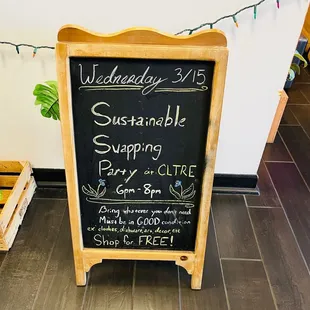 Wednesday 3/15
Sustainable
Swapping
Party at CLTRE
6pm-8pm
Bring whatever you don't need
Must be in GOOD condition
ex: clothes, dishware, art, decor, etc
Shop for FREE!